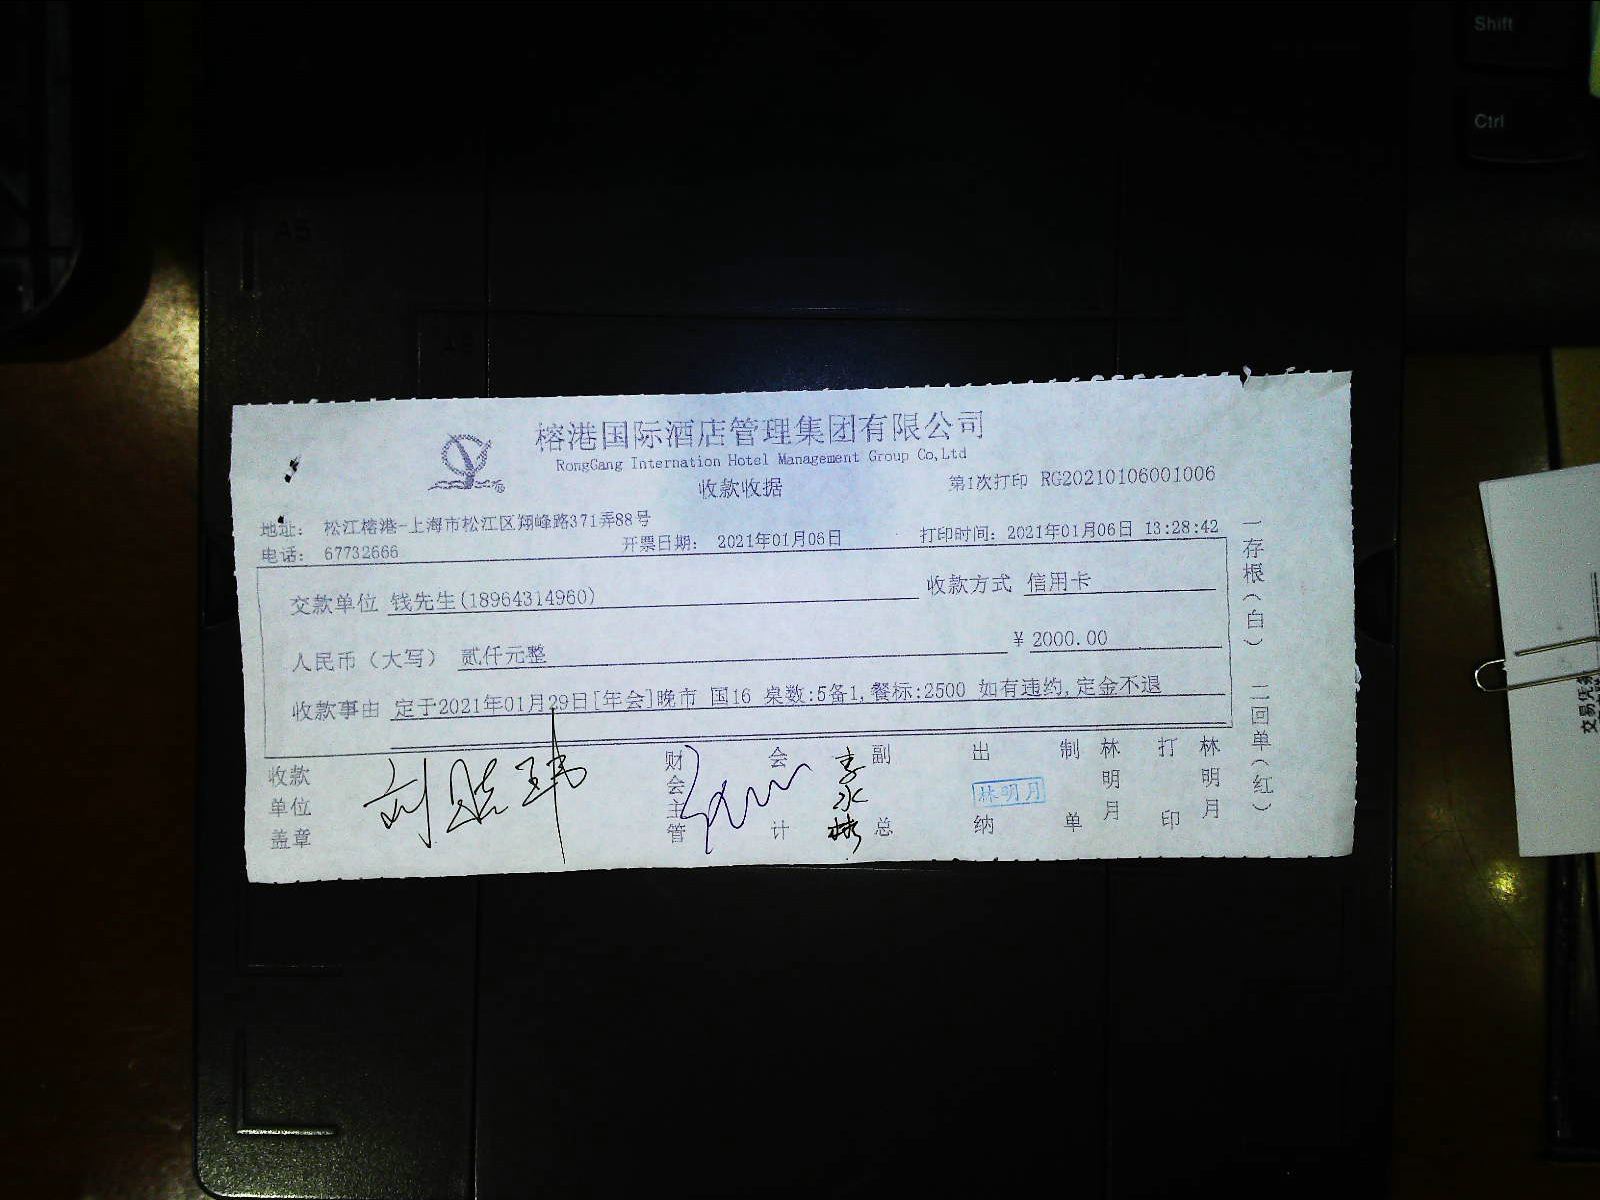 Shift
Ctrl
A5
榕港国际酒店管理集团有限公司
RongGang Internation Hotel Management Group Co,Ltd
收款收据
第1次打印 RG20210106001006
地址: 松江榕港-上海市松江区翔峰路371弄88号
电话: 67732666
开票日期: 2021年01月06日
打印时间: 2021年01月06日 13:28:42
交款单位 钱先生(18964314960)
收款方式 信用卡
人民币（大写） 贰仟元整
¥ 2000.00
收款事由 定于2021年01月29日[年会]晚市 国16 桌数:5备1,餐标:2500 如有违约,定金不退
收款单位盖章
财会主管
会计
李永彬
副总
出纳
林明月
制单
林明月
打印
林明月
一存根（白） 二回单（红）